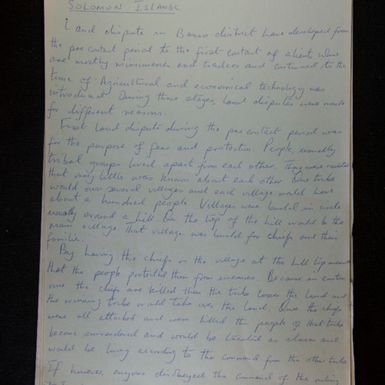 SOLOMON ISLANDS
Land dispute in Bauro district have developed from
the pre contact period to the first contact of aliens whom
are mostly missionaries and traders and continued to the
time of Agricultural and economical technology was
introduced. During these stages, land disputes was made
for different reasons.
First land dispute during the pre contact period was
for the purpose of fear and protection. People usually
tribal groups lived apart from each other. They was
that very little was known about each other. One tribe
would own several villages and each village would have
about a hundred people. Villages was build in circle
usually around a hill. On the top of the hill would be the
main village that village was build for chiefs and their
families.
By having the chiefs in the village at the hill top
that the people protected them from enemies. Because in custom
once the chiefs are killed then the tribe loses the land and
the winning tribe would take over the land. Once the chiefs
were all attacked and were killed the people of that tribe
become surrendered and would be treated as slaves and
would be living according to the commands from the other tribe
If however, anyone disobeyed the command of the ruling